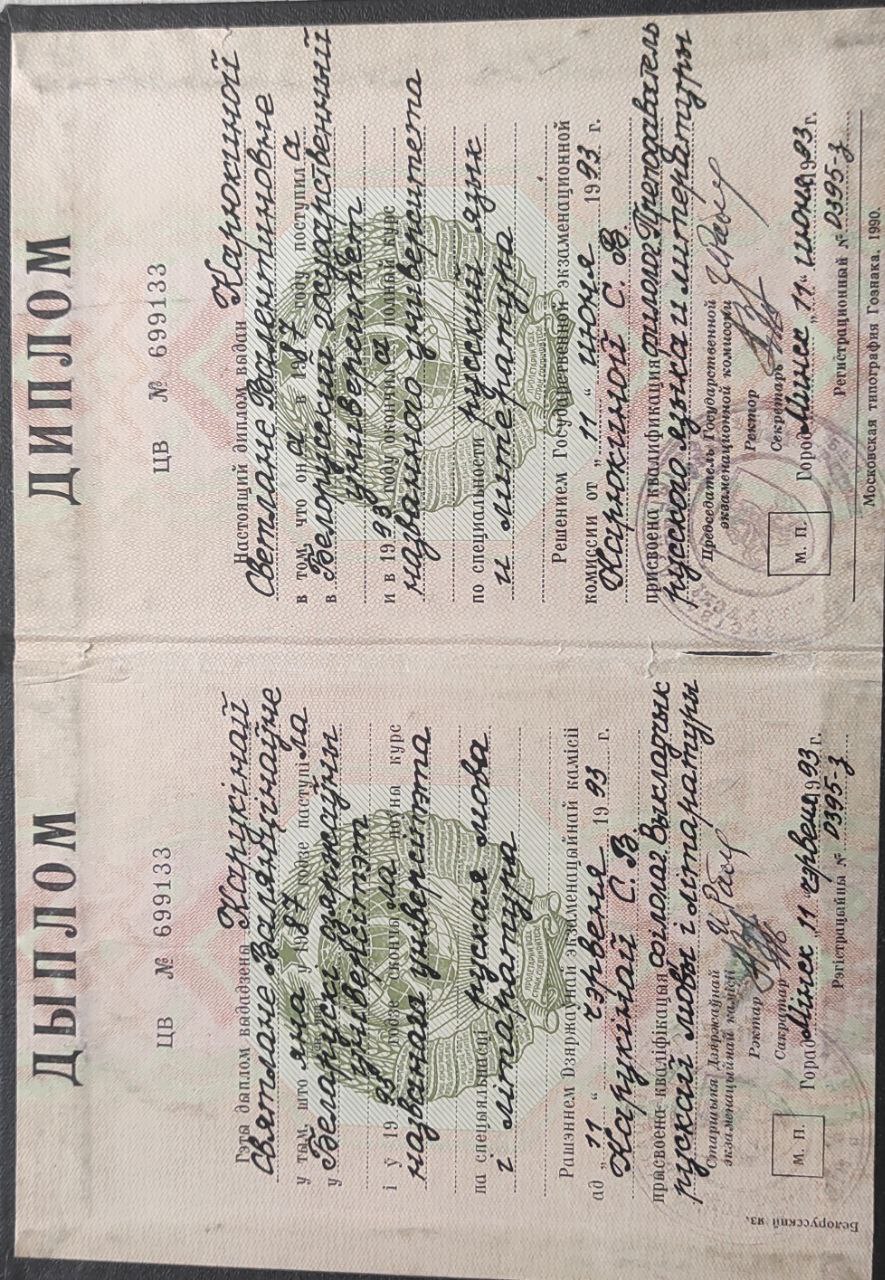 ДЫПЛОМ
ЦВ № 699133
Гэты дыплом выдадзены Карукінай
Святлане Валянцінаўне
у тым, што яна ў 1987 годзе паступіла
у Беларускі дзяржаўны
універсітэт
і ў 1993 годзе скончыла поўны курс
названага універсітэта
па спецыяльнасці руская мова
і літаратура
Рашэннем Дзяржаўнай экзаменацыйнай камісіі
ад „11“ чэрвеня 1993 г.
Карукінай С. В.
прысвоена кваліфікацыя Філолаг. Выкладчык
рускай мовы і літаратуры
Старшыня Дзяржаўнай
экзаменацыйнай камісіі
Рэктар
Сакратар
М. П.
Горад Мінск „11“ чэрвеня 1993 г.
Рэгістрацыйны № D395-з
Белорусский яз.
ДИПЛОМ
ЦВ № 699133
Настоящий диплом выдан Карюкиной
Светлане Валентиновне
в том, что она в 1987 году поступила
в Белорусский государственный
университет
и в 1993 году окончила полный курс
названного университета
по специальности русский язык
и литература
Решением Государственной экзаменационной
комиссии от „11“ июня 1993 г.
Карюкиной С. В.
присвоена квалификация филолог. Преподаватель
русского языка и литературы
Председатель Государственной
экзаменационной комиссии
Ректор
Секретарь
М. П.
Город Минск „11“ июня 1993 г.
Регистрационный № D395-з
Московская типография Гознака. 1990.